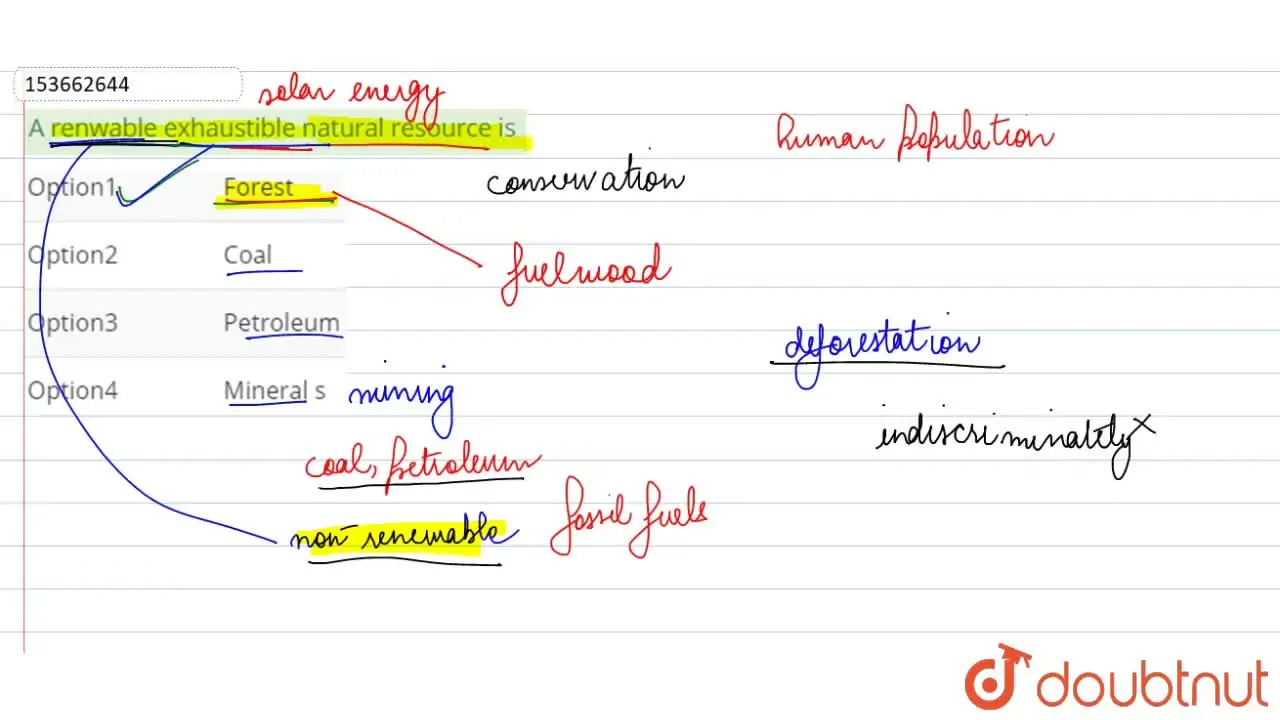 153662644
solar energy
A renwable exhaustible natural resource is
human population
Option1 Forest
conservation
Option2 Coal
fuelwood
Option3 Petroleum
deforestation
Option4 Mineral s
mining
indiscriminately
coal, petroleum
fossil fuels
non-renewable
doubtnut